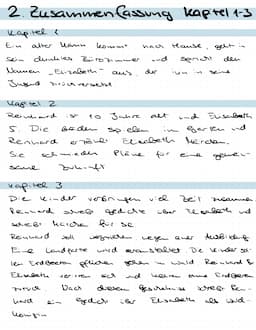 2. Zusammenfassung Kapitel 1-3
Kapitel 1
Ein alter Mann kommt nach Hause, geht in
sein dunkles Bürozimmer und spricht den
Namen „Elisabeth" aus, der ihn in seine
Jugend zurückversetzt
Kapitel 2
Reinhard ist 10 Jahre alt und Elisabeth
5. Die beiden spielen im Garten und
Reinhard erzählt Elisabeth Märchen.
Sie schmieden Pläne für eine gemein-
same Zukunft
Kapitel 3
Die Kinder verbringen viel Zeit zusammen.
Reinhard schreibt Gedichte über Elisabeth und
schreibt Märchen für sie
Reinhard soll wegziehen wegen einer Ausbildung
Eine Landpartie wird veranstaltet. Die Kinder sol-
len Erdbeeren pflücken gehen im Wald Reinhard &
Elisabeth verirren sich und kehren ohne Erdbeeren
zurück. Nach diesem Geschehnis schreibt Rein-
hard ein Gedicht über Elisabeth als Wald-
königin